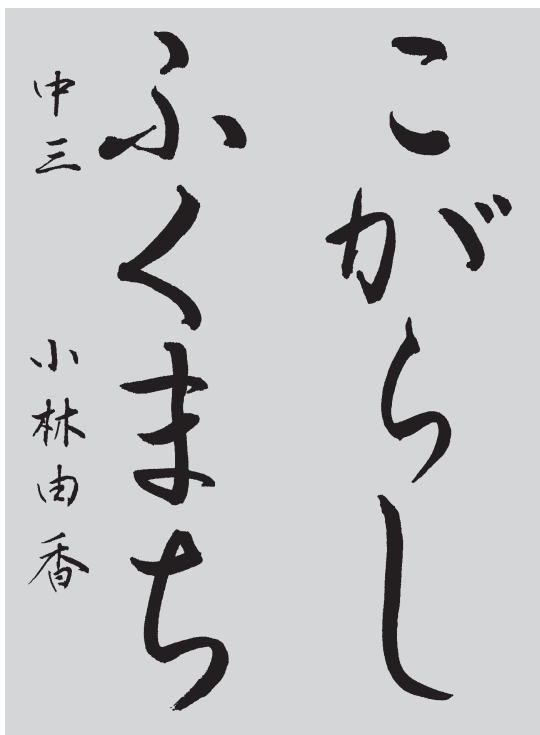 こがらし
ふくまち
中三 小林由香